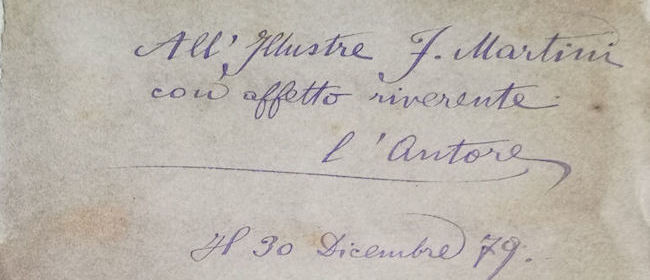 All' Illustre F. Martini
con affetto riverente
l'Autore
Il 30 Dicembre 79.